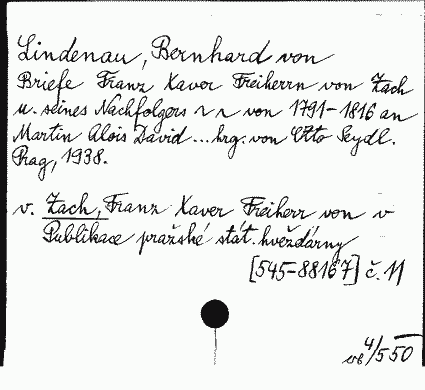 Lindenau, Bernhard von
Briefe Franz Xaver Freiherrn von Zach
u. seines Nachfolgers ~ ~ von 1791-1816 an
Martin Alois David ... hrg. von Otto Seydl.
Prag, 1938.
v. Zach, Franz Xaver Freiherr von v
Publikace pražské stát. hvězdárny
[545-88167] č. 11
4/550